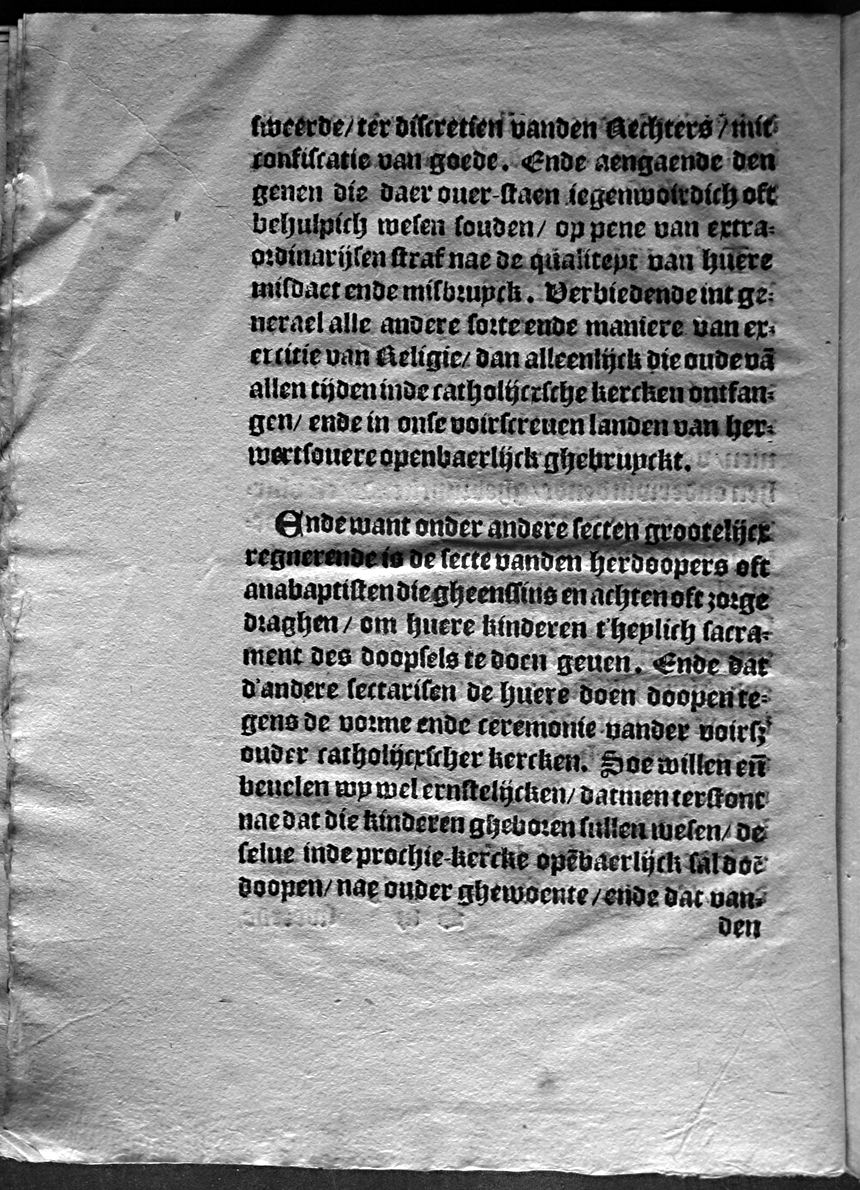 sweerde/ ter discretien vanden Rechters/ mit
confiscatie van goede. Ende aengaende den
genen die daer ouer-staen iegenwoirdich oft
behulpich wesen souden/ op pene van extra-
ordinarijsen straf nae de qualiteyt van huere
misdaet ende misbruyck. Verbiedende int ge-
nerael alle andere sorte ende maniere van ex-
ercitie van Religie/ dan alleenlijck die oude vā
allen tijden inde catholijcxsche kercken ontfan-
gen/ ende in onse voirscreuen landen van her-
wertsouere openbaerlijck ghebruyckt.
Ende want onder andere secten grootelijcx
regnerende is de secte vanden herdoopers oft
anabaptisten die gheenssins en achten oft zorge
draghen/ om huere kinderen t'heylich sacra-
ment des doopsels te doen geuen. Ende dat
d'andere sectarisen de huere doen doopen te-
gens de vorme ende ceremonie vander voirsz
ouder catholijcxscher kercken. Soe willen eñ
beuelen wy wel ernstelijcken/ datmen terstont
nae dat die kinderen gheboren sullen wesen/ de
selue inde prochie-kercke opēbaerlijck sal doē
doopen/ nae ouder ghewoente/ ende dat van-
den